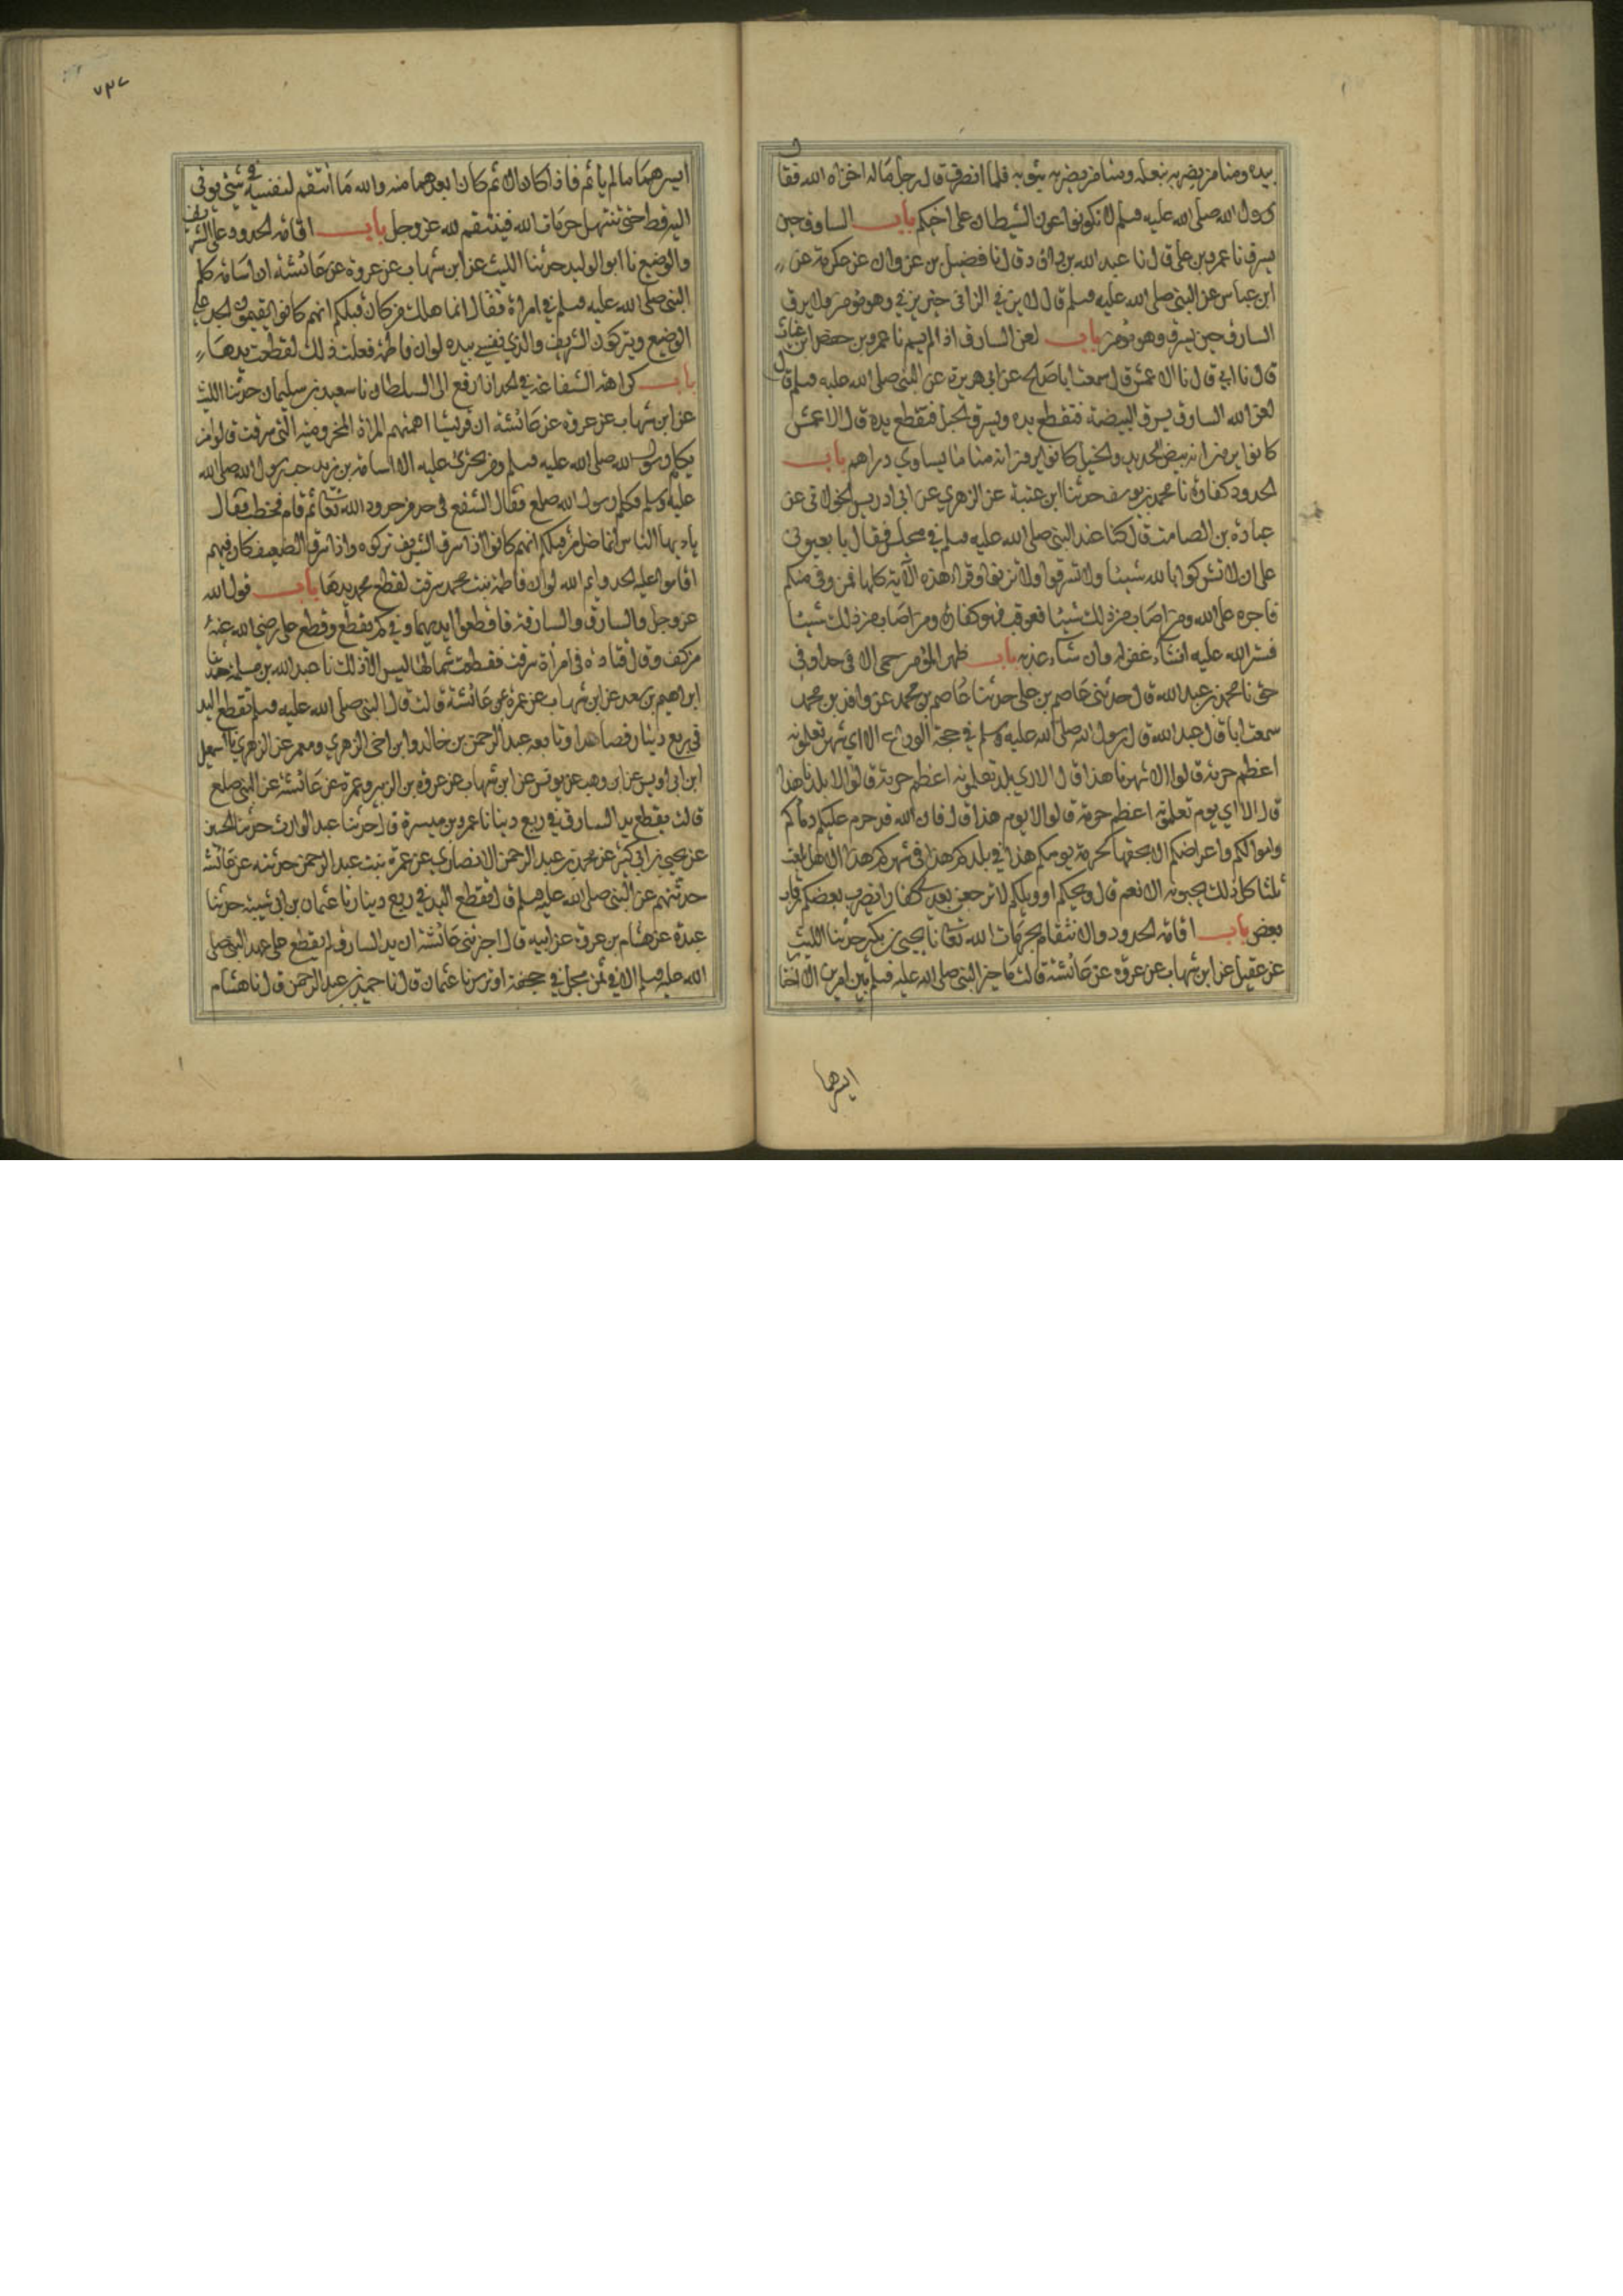 بيده ومنا من يضربه بنعله ومنا من يضربه بثوبه فلما انصرف قال رجل ماله اخزاه الله فقال
رسول الله صلى الله عليه وسلم لا تكونوا عون الشيطان على اخيكم باب السارق حين
يسرق نا عمرو بن علي قال نا عبد الله بن داود قال نا فضيل بن غزوان عن عكرمة عن
ابن عباس عن النبي صلى الله عليه وسلم قال لا يزني الزاني حين يزني وهو مؤمن ولا يسرق
السارق حين يسرق وهو مؤمن باب لعن السارق اذا لم يسم نا عمرو بن حفص ابن غياث
قال نا ابي قال نا الاعمش قال سمعت ابا صالح عن ابي هريرة عن النبي صلى الله عليه وسلم قال
لعن الله السارق يسرق البيضة فتقطع يده ويسرق الحبل فتقطع يده قال الاعمش
كانوا يرون انه بيض الحديد والحبل كانوا يرون انه منها ما يساوي دراهم باب
الحدود كفارة نا محمد بن يوسف حدثنا ابن عيينة عن الزهري عن ابي ادريس الخولاني عن
عبادة بن الصامت قال كنا عند النبي صلى الله عليه وسلم في مجلس فقال بايعوني
على ان لا تشركوا بالله شيئا ولا تسرقوا ولا تزنوا وقراء هذه الآية كلها فمن وفى منكم
فاجره على الله ومن اصاب من ذلك شيئا فعوقب فهو كفارة ومن اصاب من ذلك شيئا
فستر الله عليه ان شاء غفر له وان شاء عذبه باب ظهر المؤمن حمى الا في حد او في
حق نا محمد بن عبد الله قال حدثني عاصم بن علي حدثنا عاصم بن محمد عن واقد بن محمد
سمعت ابي قال عبد الله قال رسول الله صلى الله عليه وسلم في حجة الوداع الا اي شهر تعلمونه
اعظم حرمة قالوا الا شهرنا هذا قال الا اي بلد تعلمونه اعظم حرمة قالوا الا بلدنا هذا
قال الا اي يوم تعلمونه اعظم حرمة قالوا الا يوم هذا قال فان الله قد حرم عليكم دماءكم
واموالكم واعراضكم الا بحقها كحرمة يومكم هذا في بلدكم هذا في شهركم هذا الا هل بلغت
ثلثا كل ذلك يجيبونه الا نعم قال ويحكم او ويلكم لا ترجعن بعدي كفارا يضرب بعضكم رقاب
بعض باب اقامة الحدود والانتقام لحرمات الله تعالى نا يحيى بن بكير حدثنا الليث
عن عقيل عن ابن شهاب عن عروة عن عائشة قالت ما خير النبي صلى الله عليه وسلم بين امرين الا اختار
ايسرهما
ايسرهما ما لم ياثم فاذا كان الاثم كان ابعدهما منه والله ما انتقم لنفسه في شيء يوتى
اليه قط حتى تنتهك حرمات الله فينتقم لله عز وجل باب اقامة الحدود على الشريف
والوضيع نا ابو الوليد حدثنا الليث عن ابن شهاب عن عروة عن عائشة ان اسامة كلم
النبي صلى الله عليه وسلم في امراة فقال انما هلك من كان قبلكم انهم كانوا يقيمون الحد على
الوضيع ويتركون الشريف والذي نفسي بيده لو ان فاطمة فعلت ذلك لقطعت يدها
باب كراهة الشفاعة في الحد اذا رفع الى السلطان نا سعيد بن سليمان حدثنا الليث
عن ابن شهاب عن عروة عن عائشة ان قريشا اهمتهم المراة المخزومية التي سرقت قالوا من
يكلم رسول الله صلى الله عليه وسلم ومن يجترئ عليه الا اسامة بن زيد حب رسول الله صلى الله
عليه وسلم فكلم رسول الله صلعم فقال اتشفع في حد من حدود الله تعالى ثم قام فخطب فقال
يا ايها الناس انما ضل من قبلكم انهم كانوا اذا سرق الشريف تركوه واذا سرق الضعيف فيهم
اقاموا عليه الحد وايم الله لو ان فاطمة بنت محمد سرقت لقطع محمد يدها باب قول الله
عز وجل والسارق والسارقة فاقطعوا ايديهما وفي كم يقطع وقطع علي رضي الله عنه
من كف وقال قتادة في امراة سرقت فقطعت شمالها ليس الا ذلك نا عبد الله بن مسلمة حدثنا
ابراهيم بن سعد عن ابن شهاب عن عمرة عن عائشة قالت قال النبي صلى الله عليه وسلم تقطع اليد
في ربع دينار فصاعدا وتابعه عبد الرحمن بن خالد وابن اخي الزهري ومعمر عن الزهري نا اسمعيل
ابن ابي اويس عن ابن وهب عن يونس عن ابن شهاب عن عروة بن الزبير وعمرة عن عائشة عن النبي صلعم
قالت يقطع يد السارق في ربع دينار نا عمرو بن ميسرة قال حدثنا عبد الوارث حدثنا الحسين
عن يحيى بن ابي كثير عن محمد بن عبد الرحمن الانصاري عن عمرة بنت عبد الرحمن حدثته عن عائشة
حدثتهم عن النبي صلى الله عليه وسلم قال يقطع اليد في ربع دينار نا عثمان بن ابي شيبة حدثنا
عبدة عن هشام بن عروة عن ابيه قال اخبرتني عائشة ان يد السارق لم يقطع على عهد النبي صلى
الله عليه وسلم الا في ثمن مجن في حجفة او ترس نا عثمان قال نا حميد بن عبد الرحمن قال نا هشام